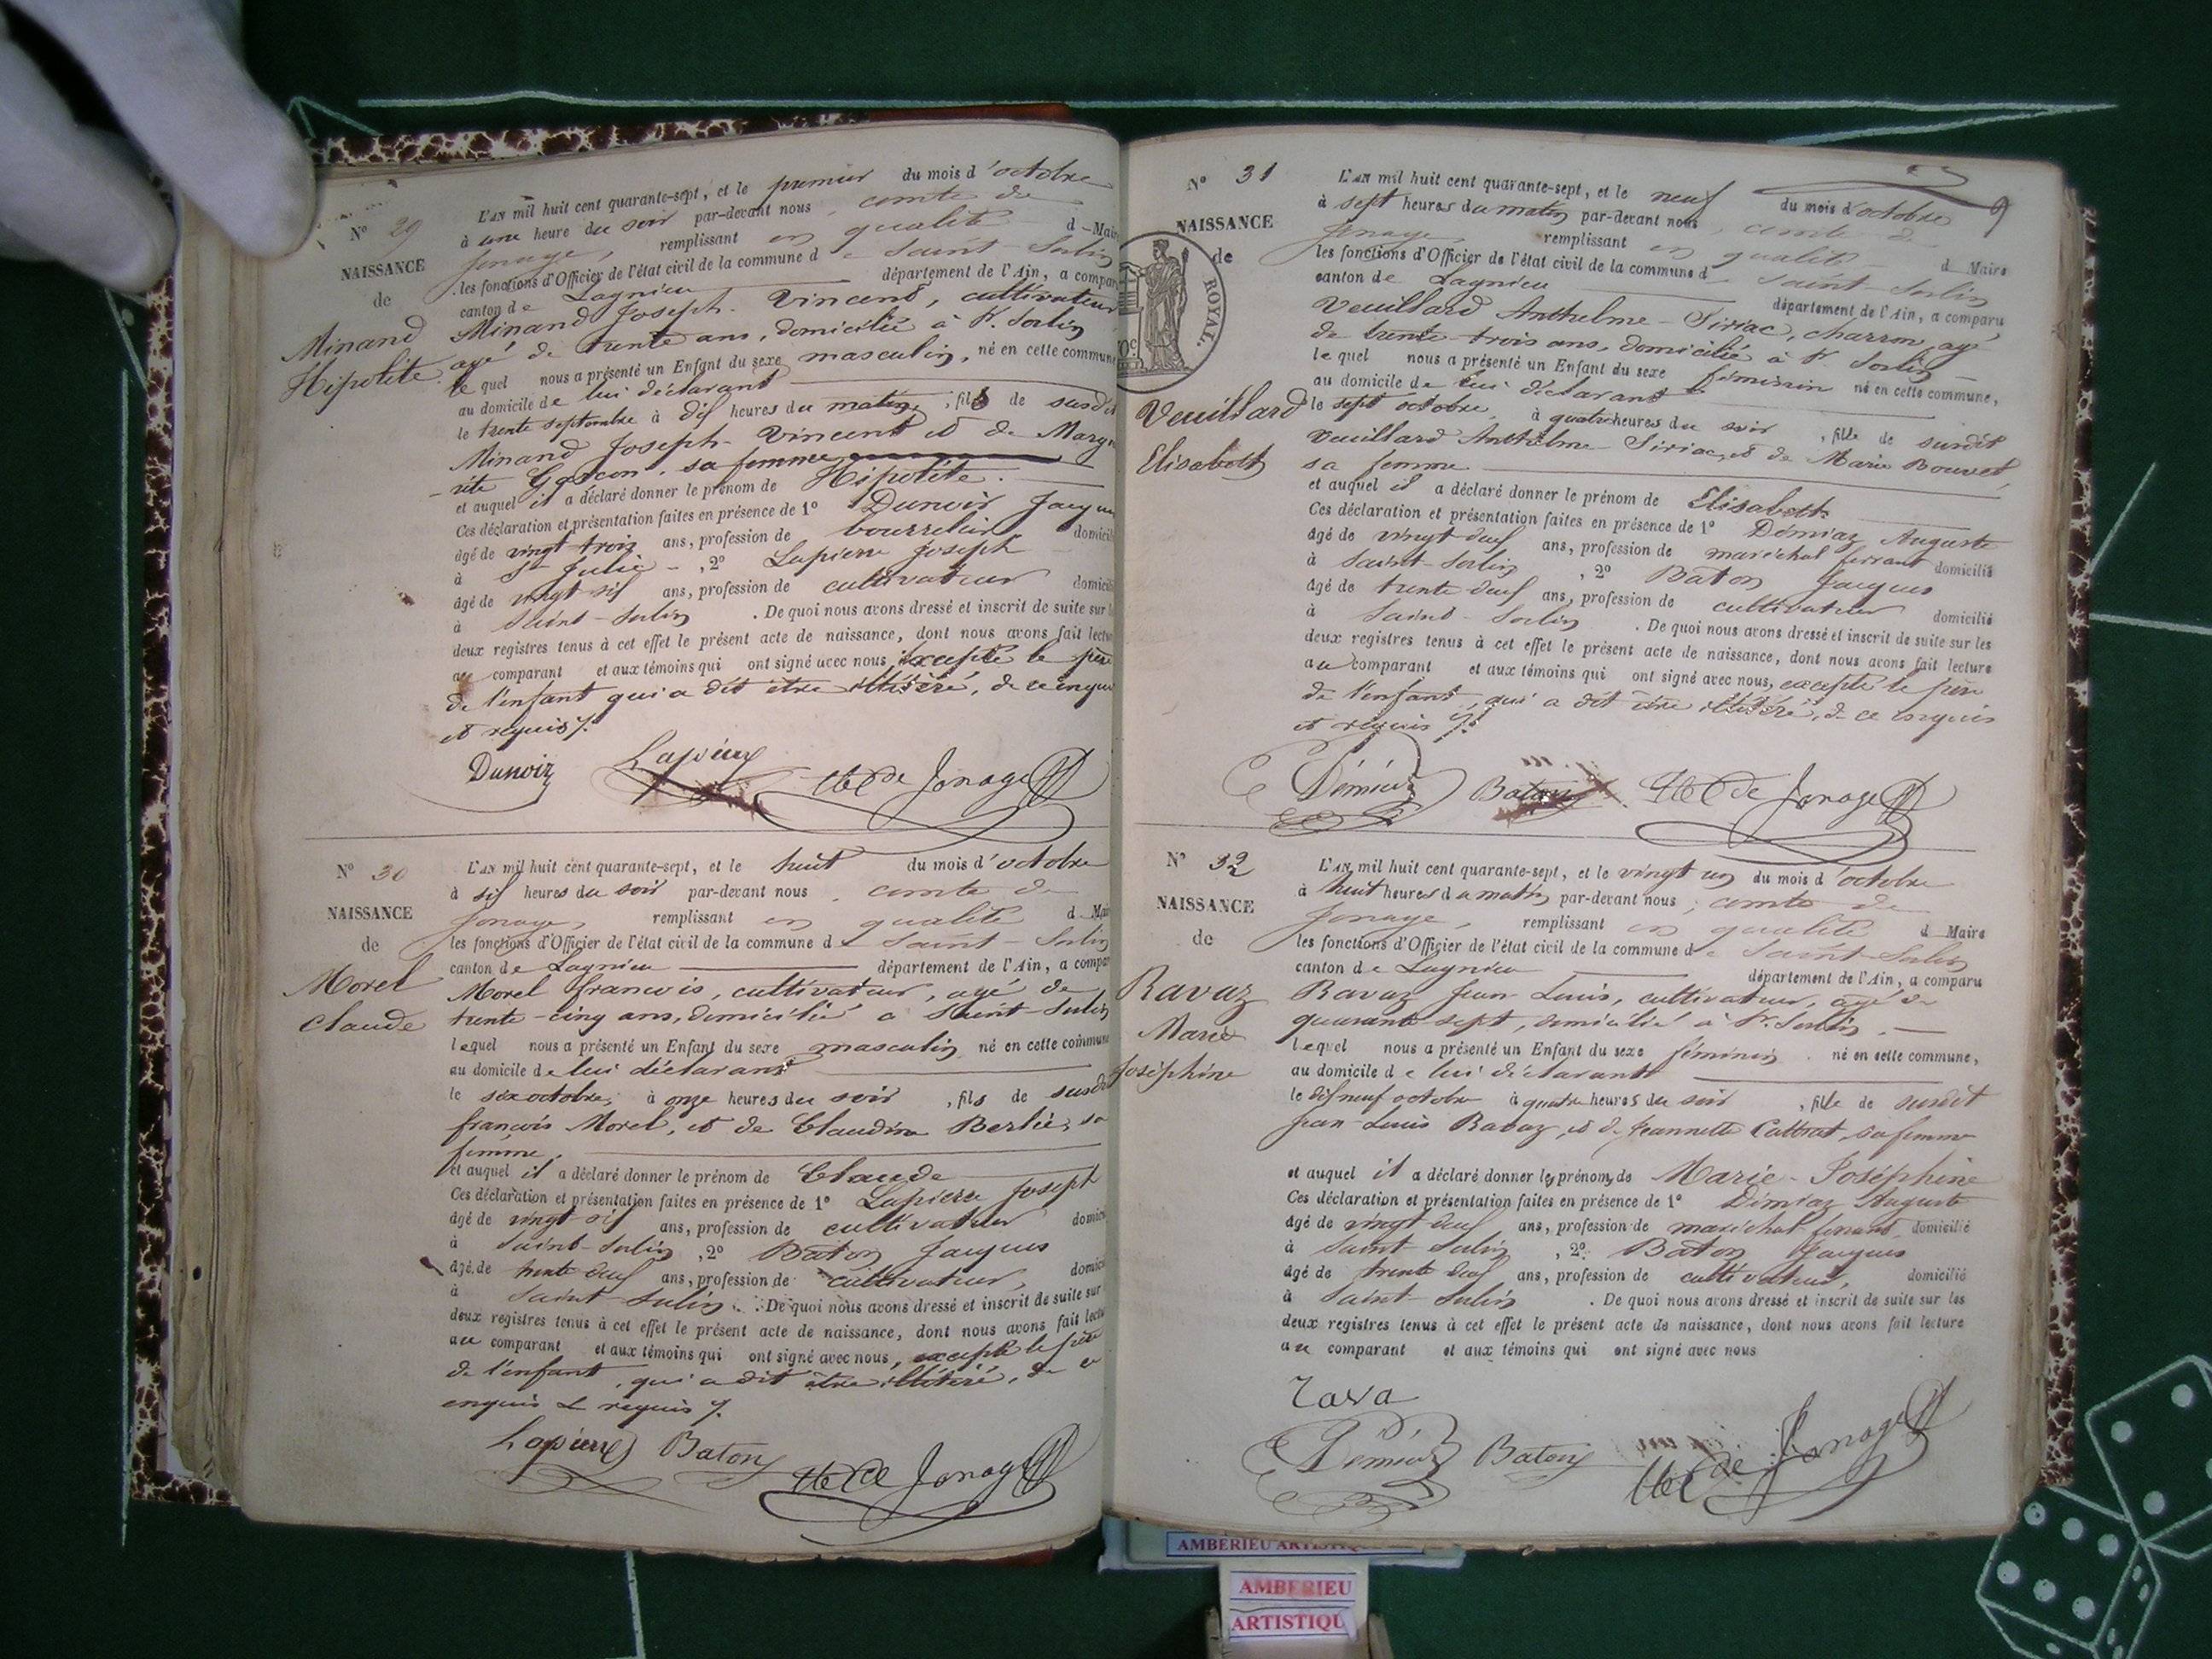 N° 29
NAISSANCE
de
Minand
Hipolite
L'AN mil huit cent quarante-sept, et le premier du mois d'octobre
à une heure du soir par-devant nous, comte de
Jonage, remplissant en qualité d Mair
les fonctions d'Officier de l'état civil de la commune de Saint-Sorlin
canton de Lagnieu département de l'Ain, a compar
Minand Joseph-Vincent, cultivateur
agé de trente ans, domicilié à St. Sorlin
le quel nous a présenté un Enfant du sexe masculin, né en cette commune
au domicile de lui déclarant
le trente septembre à dix heures du matin, fils de susdit
Minand Joseph-Vincent et de Margu
-rite Gascon, sa femme
et auquel il a déclaré donner le prénom de Hipolite.
Ces déclaration et présentation faites en présence de 1° Dunoir Jacques
âgé de vingt trois ans, profession de bourrelier domicil
à Ste Julie - , 2° Lapierre Joseph
âgé de vingt six ans, profession de cultivateur domicil
à Saint-Sorlin . De quoi nous avons dressé et inscrit de suite sur l
deux registres tenus à cet effet le présent acte de naissance, dont nous avons fait lectu
au comparant et aux témoins qui ont signé avec nous, excepté le père
de l'enfant qui a dit être illitéré, de ce enquis
et requis ./.
Dunoir Lapierre Cte de Jonage
N° 30
NAISSANCE
de
Morel
Claude
L'AN mil huit cent quarante-sept, et le huit du mois d'octobre
à six heures du soir par-devant nous, comte de
Jonage, remplissant en qualité d Mair
les fonctions d'Officier de l'état civil de la commune de Saint-Sorlin
canton de Lagnieu département de l'Ain, a compar
Morel francois, cultivateur, agé de
trente-cinq ans, domicilié a Saint-Sorlin
lequel nous a présenté un Enfant du sexe masculin né en cette commune
au domicile de lui déclarant
le six octobre, à onze heures du soir, fils de susdit
françois Morel, et de Claudine Berlie, sa
femme.
et auquel il a déclaré donner le prénom de Claude
Ces déclaration et présentation faites en présence de 1° Lapierre Joseph
âgé de vingt six ans, profession de cultivateur domici
à Saint-Sorlin , 2° Baton Jacques
âgé de trente deux ans, profession de cultivateur, domici
à Saint-Sorlin . De quoi nous avons dressé et inscrit de suite sur
deux registres tenus à cet effet le présent acte de naissance, dont nous avons fait lectu
au comparant et aux témoins qui ont signé avec nous, excepté le père
de l'enfant, qui a dit être illitéré, de ce
enquis & requis ./.
Lapierre Baton Cte de Jonage
N° 31
NAISSANCE
de
ROYAL.
Veuillard
Elisabeth
L'AN mil huit cent quarante-sept, et le neuf du mois d'octobre
à sept heures du matin par-devant nous, comte de
Jonage, remplissant en qualité d Maire
les fonctions d'Officier de l'état civil de la commune de Saint-Sorlin
canton de Lagnieu département de l'Ain, a comparu
Veuillard Anthelme-Siriac, charron, agé
de trente-trois ans, domicilié à St. Sorlin
le quel nous a présenté un Enfant du sexe féminin né en cette commune,
au domicile de lui déclarant
le sept octobre, à quatre heures du soir, fille de susdit
Veuillard Anthelme-Siriac, et de Marie Bouvet,
sa femme
et auquel il a déclaré donner le prénom de Elisabeth
Ces déclaration et présentation faites en présence de 1° Démiaz Auguste
âgé de vingt deux ans, profession de maréchal ferrant domicilié
à Saint-Sorlin , 2° Baton Jacques
âgé de trente deux ans, profession de cultivateur domicilié
à Saint-Sorlin . De quoi nous avons dressé et inscrit de suite sur les
deux registres tenus à cet effet le présent acte de naissance, dont nous avons fait lecture
au comparant et aux témoins qui ont signé avec nous, excepté le père
de l'enfant, qui a dit être illitéré, de ce enquis
et requis ./.
Démiaz Baton Cte de Jonage
N° 32
NAISSANCE
de
Ravaz
Marie
Joséphine
L'AN mil huit cent quarante-sept, et le vingt un du mois d'octobre
à huit heures du matin par-devant nous, comte de
Jonage, remplissant en qualité d Maire
les fonctions d'Officier de l'état civil de la commune de Saint-Sorlin
canton de Lagnieu département de l'Ain, a comparu
Ravaz Jean-Louis, cultivateur, agé de
quarante-sept, domicilié à St. Sorlin.
lequel nous a présenté un Enfant du sexe féminin né en cette commune,
au domicile de lui déclarant
le dix neuf octobre à quatre heures du soir, fille de susdit
Jean-Louis Ravaz, et de Jeannette Cattrat, sa femme
et auquel il a déclaré donner les prénoms de Marie-Joséphine
Ces déclaration et présentation faites en présence de 1° Démiaz Auguste
âgé de vingt deux ans, profession de maréchal ferrant, domicilié
à Saint-Sorlin , 2° Baton Jacques
âgé de trente deux ans, profession de cultivateur, domicilié
à Saint-Sorlin . De quoi nous avons dressé et inscrit de suite sur les
deux registres tenus à cet effet le présent acte de naissance, dont nous avons fait lecture
au comparant et aux témoins qui ont signé avec nous
rava
Démiaz Baton Cte de Jonage
AMBERIEU ARTISTIQUE
AMBERIEU
ARTISTIQU